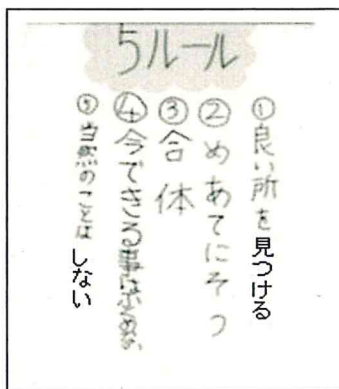 5ルール
①良い所を見つける
②めあてにそう
③合体
④今できる事は
⑤当然のことはしない